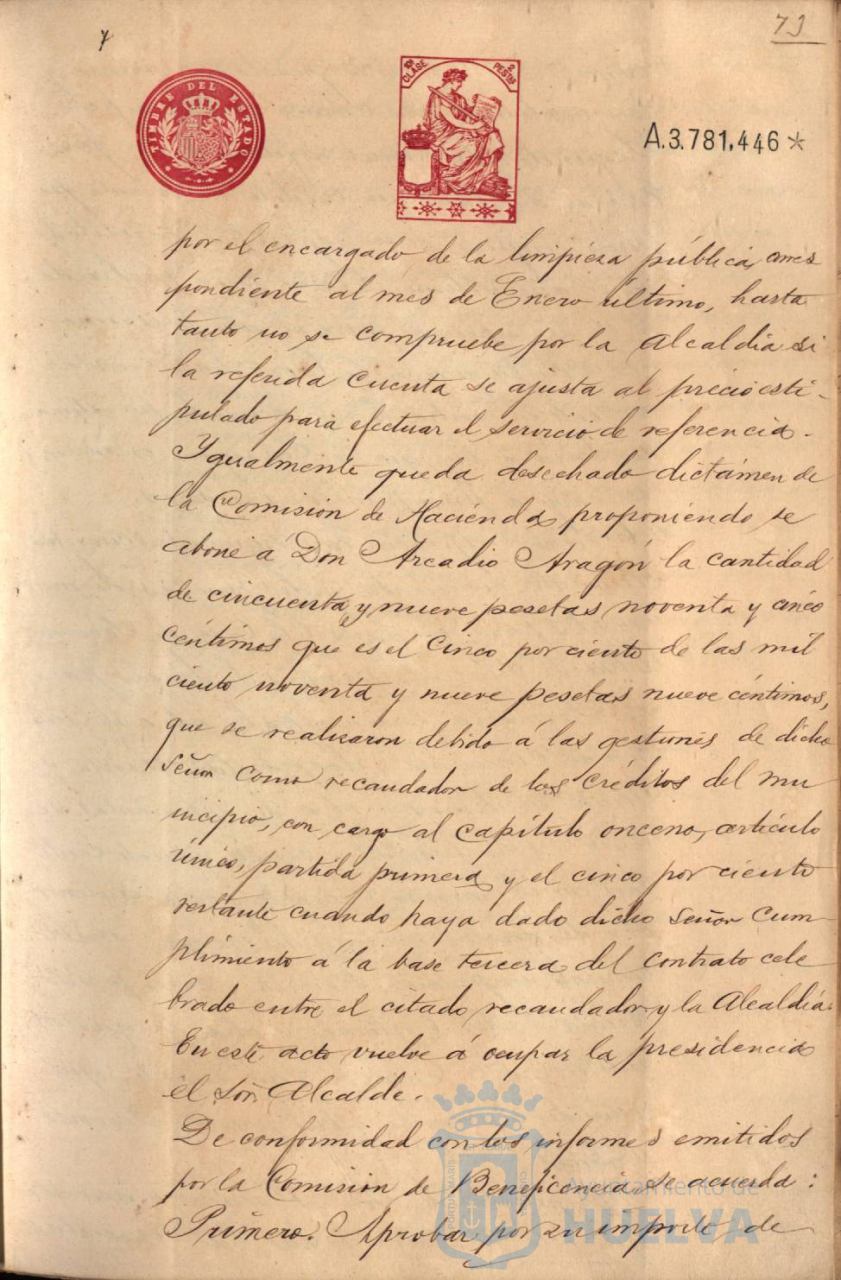 7
73
TIMBRE DEL ESTADO
10ª CLASE
2 PESTAS
A.3.781,446*
por el encargado de la limpieza pública, corres
pondiente al mes de Enero último, hasta
tanto no se compruebe por la Alcaldia si
la referida cuenta se ajusta al precio esti-
pulado para efectuar el servicio de referencia.
Ygualmente queda desechado dictámen de
la Comisión de Hacienda proponiendo se
abone á Don Arcadio Aragón la cantidad
de cincuenta y nueve pesetas noventa y cinco
céntimos que es el cinco por ciento de las mil
ciento noventa y nueve pesetas nueve céntimos,
que se realizaron debido á las gestiones de dicho
Señor como recaudador de los créditos del mu
nicipio, con cargo al capítulo onceno, artículo
único, partida primera y el cinco por ciento
restante cuando haya dado dicho Señor cum-
plimiento á la base tercera del contrato cele
brado entre el citado recaudador y la Alcaldía.
En este acto vuelve á ocupar la presidencia
el Sor. Alcalde.
De conformidad con los informes emitidos
por la Comisión de Beneficencia, se acuerda:
Primero. Aprobar por su importe de
Ayuntamiento de
HUELVA